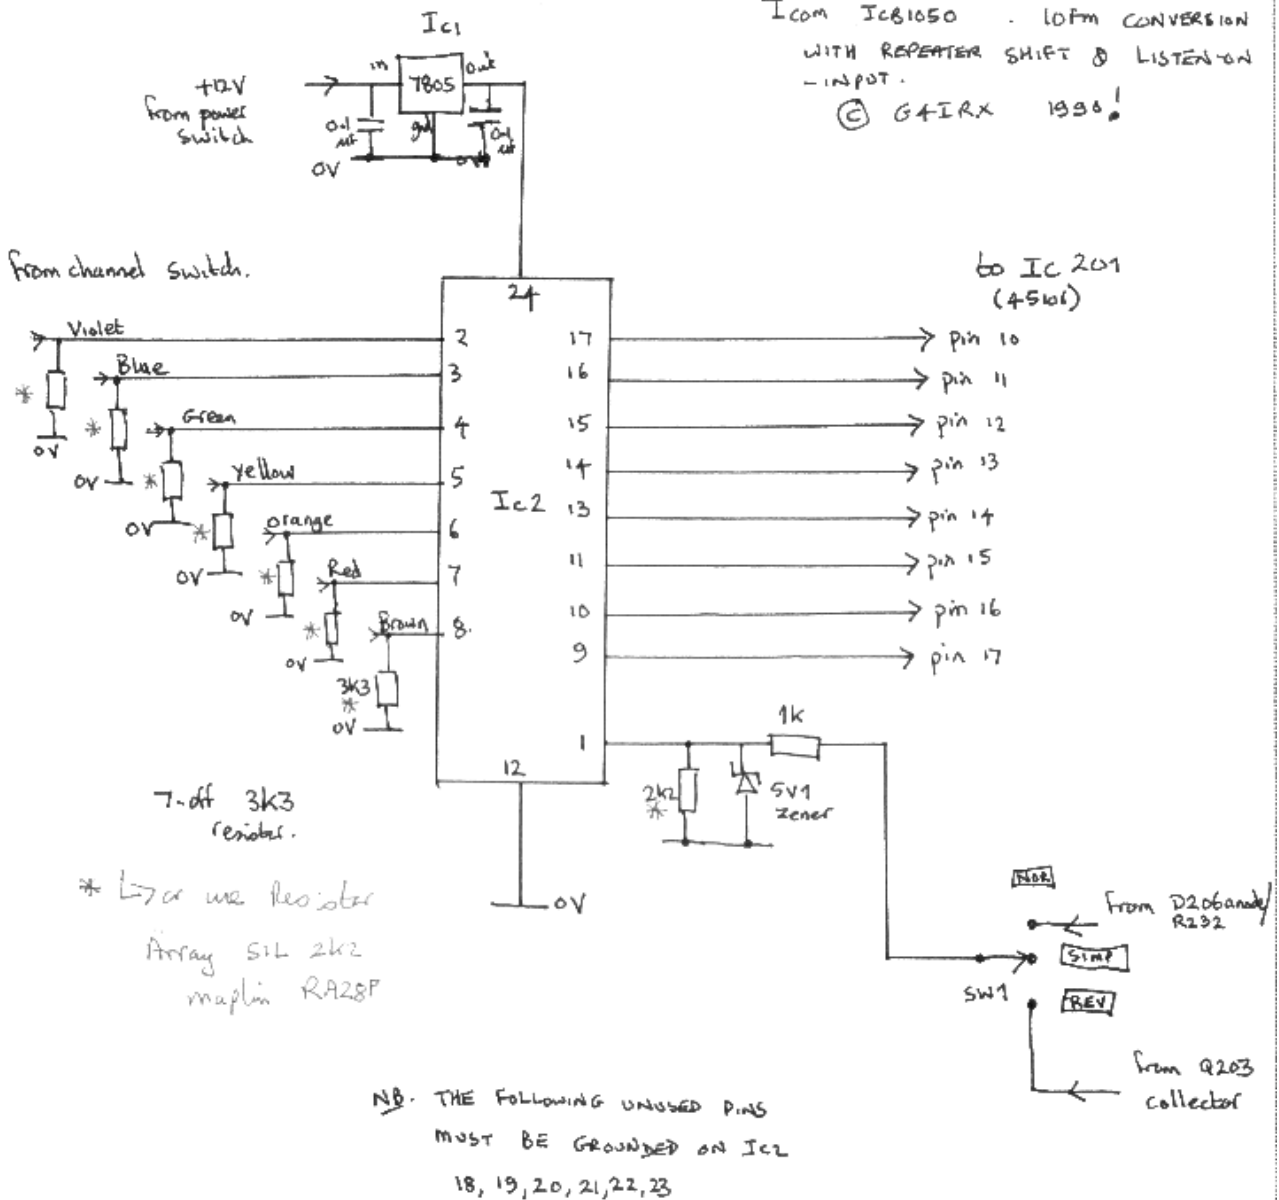 Ic1
Icom ICB1050 . 10Fm CONVERSION
WITH REPEATER SHIFT & LISTEN-ON
- INPUT.
© G4IRX 1990!
+12V
from power
switch
in
7805
out
gnd
0.1
uf
0.1
uf
0V
0V
from channel switch.
to Ic 201
(45106)
24
Violet
2
17
pin 10
Blue
3
16
pin 11
Green
4
15
pin 12
yellow
5
14
pin 13
Ic2
orange
6
13
pin 14
Red
7
11
pin 15
Brown
8.
10
pin 16
9
pin 17
*
0V
*
0V
*
0V
*
0V
*
0V
*
0V
3k3
*
0V
1
1k
12
2k2
*
5V1
zener
0V
7-off 3k3
resistor.
* or use Resistor
Array SIL 2k2
maplin RA28P
NOR
from D206 anode/
R232
SIMP
SW1
REV
from Q203
collector
NB. THE FOLLOWING UNUSED PINS
MUST BE GROUNDED ON Ic2
18, 19, 20, 21, 22, 23